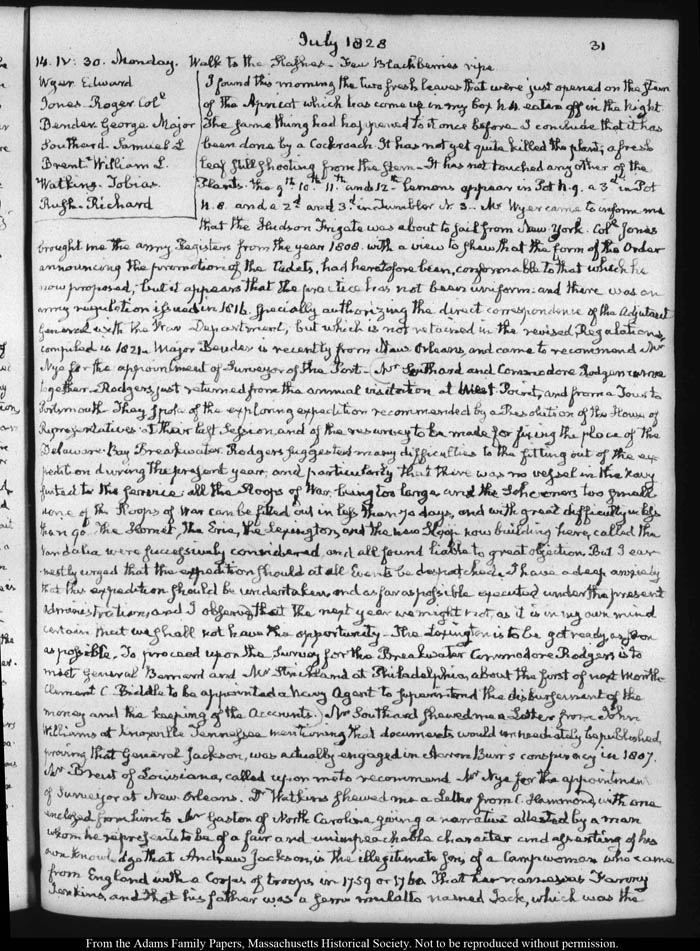 July 1828
31
14. IV: 30. Monday. Walk to the Flashes - Few Blackberries ripe
Wyer Edward
Jones. Roger Colˡ
Bender George. Major
Southard. Samuel L
Brentˢ William L.
Watkins. Tobias
Rush. Richard
I found this morning the two fresh leaves that were just opened on the stem
of the Apricot which has come up in my box N. 4 eaten off in the Night
The same thing had happened to it once before. I conclude that it has
been done by a Cockroach. It has not yet quite killed the plant; a fresh
leaf still shooting from the stem - It has not touched any other of the
Plants. The 9ᵗʰ 10.ᵗʰ 11.ᵗʰ and 12ᵗʰ Lemons appear in Pot N. 9. a 3ᵈ in Pot
N. 8. and a 2ᵈ and 3ᵈ in Tumbler N. 3 - Mr Wyer came to inform me
that the Hudson Frigate was about to sail from New York. Colˡ Jones
brought me the army Registers from the year 1808. with a view to shew that the form of the Order
announcing the promotion of the Cadets, had heretofore been, conformable to that which he
now proposed; but it appears that the practice has not been uniform: and there was an
army regulation issued in 1816. specially authorizing the direct correspondence of the Adjutant
General with the War Department, but which is not retained in the revised Regulations,
compiled in 1821. Major Bender is recently from New Orleans, and came to recommend Mr
Nye for the appointment of Surveyor of the Port - Mr Southard and Commodore Rodgers came
together - Rodgers, just returned from the annual visitation at West-Point, and from a Tour to
Portsmouth - They spoke of the exploring expedition recommended by a Resolution of the House of
Representatives at their last Session, and of the survey to be made for fixing the place of the
Delaware-Bay Breakwater. Rodgers suggested many difficulties to the fitting out of the ex-
pedition during the present year, and particularly that there was no vessel in the Navy
suited to the service: all the Sloops of War, being too large and the Schooners too small
none of the Sloops of war can be fitted out in less than 70 days, and with great difficulty in less
than 90. The Hornet, The Erie, the Lexington, and the new Sloop now building here, called the
Vandalia were successively considered, and all found liable to great objection. But I ear-
nestly urged that the expedition should at all Events be despatched. I have a deep anxiety
that this expedition should be undertaken, and as far as possible executed under the present
Administration, and I observed that the next year we might not, as it is in my own mind
certain that we shall not have the opportunity - The Lexington is to be got ready as soon
as possible. To proceed upon the Survey for the Breakwater Commodore Rodgers is to
meet General Bernard and Mr Strickland at Philadelphia, about the first of next Month.
Clement C. Biddle to be appointed a Navy Agent to superintend the disbursement of the
money and the keeping of the Accounts. Mr Southard shewed me a Letter from John
Williams at Knoxville Tennessee mentioning that documents would immediately be published,
proving that General Jackson, was actually engaged in Aaron Burr's conspiracy in 1807.
Mr Brent of Louisiana, called upon me to recommend Mr Nye for the appointment
of Surveyor at New Orleans. Dr Watkins shewed me a Letter from C. Hammond, with one
enclosed from him to Mr Gaston of North Carolina, giving a narrative attested by a man
whom he represents to be of a fair and unimpeachable character and asserting of his
own knowledge that Andrew Jackson, is the illegitimate son, of a Campwoman who came
from England with a Corps of troops in 1759 or 1760. That her name was Fanny
Jenkins, and that his father was a            mulatto named Jack, which was the
From the Adams Family Papers, Massachusetts Historical Society. Not to be reproduced without permission.